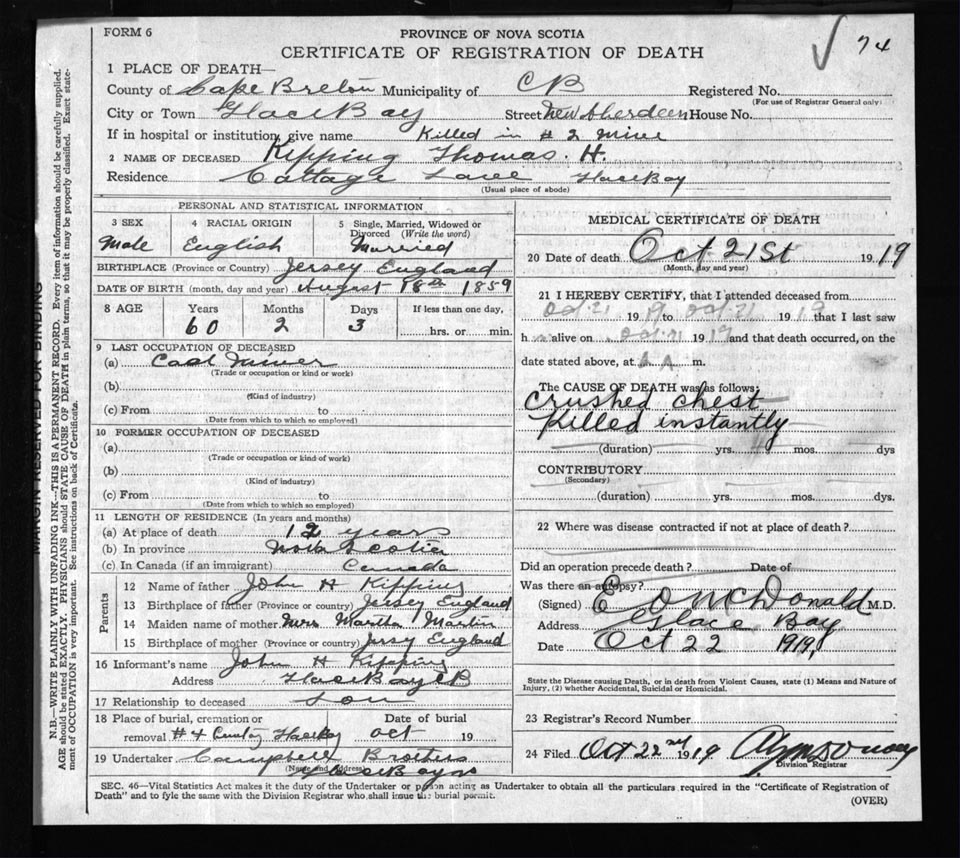 FORM 6
PROVINCE OF NOVA SCOTIA
CERTIFICATE OF REGISTRATION OF DEATH
74
1 PLACE OF DEATH—
County of Cape Breton Municipality of CB Registered No.
(For use of Registrar General only)
City or Town Glace Bay Street New Aberdeen House No.
If in hospital or institution, give name Killed in # 2 Mine
2 NAME OF DECEASED Kipping Thomas. H.
Residence Cottage Lane Glace Bay
(Usual place of abode)
PERSONAL AND STATISTICAL INFORMATION
3 SEX 4 RACIAL ORIGIN 5 Single, Married, Widowed or Divorced (Write the word)
Male English Married
BIRTHPLACE (Province or Country) Jersey England
DATE OF BIRTH (month, day and year) August 18th 1859
8 AGE Years Months Days If less than one day,
60 2 3 hrs. or min.
9 LAST OCCUPATION OF DECEASED
(a) Coal Miner
(Trade or occupation or kind or work)
(b)
(Kind of industry)
(c) From to
(Date from which to which so employed)
10 FORMER OCCUPATION OF DECEASED
(a)
(Trade or occupation or kind of work)
(b)
(Kind of industry)
(c) From to
(Date from which to which so employed)
11 LENGTH OF RESIDENCE (In years and months)
(a) At place of death 12 years
(b) In province Nova Scotia
(c) In Canada (if an immigrant) Canada
Parents
12 Name of father John H Kipping
13 Birthplace of father (Province or country) Jersey England
14 Maiden name of mother Mrs Martha Martin
15 Birthplace of mother (Province or country) Jersy England
16 Informant's name John H Kipping
Address Glace Bay CB
17 Relationship to deceased Son
18 Place of burial, cremation or Date of burial
removal #4 Glace Bay Oct 19
19 Undertaker Campbell Brothers
(Name and Address) Glace Bay
MEDICAL CERTIFICATE OF DEATH
20 Date of death Oct 21st 1919
(Month, day and year)
21 I HEREBY CERTIFY, that I attended deceased from
Oct. 21 1919 to Oct. 21 1919 that I last saw
h alive on Oct. 21 1919 and that death occurred, on the
date stated above, at m.
The CAUSE OF DEATH was as follows:
Crushed chest
Killed instantly
(duration) yrs. mos. dys
CONTRIBUTORY
(Secondary)
(duration) yrs. mos. dys.
22 Where was disease contracted if not at place of death?
Did an operation precede death? Date of
Was there an autopsy?
(Signed) E O McDonald M.D.
Address Glace Bay
Date Oct 22 1919,
State the Disease causing Death, or in death from Violent Causes, state (1) Means and Nature of
Injury, (2) whether Accidental, Suicidal or Homicidal.
23 Registrar's Record Number
24 Filed Oct 22nd 1919
Division Registrar
SEC. 46—Vital Statistics Act makes it the duty of the Undertaker or person acting as Undertaker to obtain all the particulars required in the "Certificate of Registration of
Death" and to fyle the same with the Division Registrar who shall issue the burial permit.
(OVER)
MARGIN RESERVED FOR BINDING
N.B.—WRITE PLAINLY WITH UNFADING INK—THIS IS A PERMANENT RECORD. Every item of information should be carefully supplied.
AGE should be stated EXACTLY. PHYSICIANS should STATE CAUSE OF DEATH in plain terms, so that it may be properly classified. Exact state-
ment of OCCUPATION is very important. See instructions on back of Certificate.